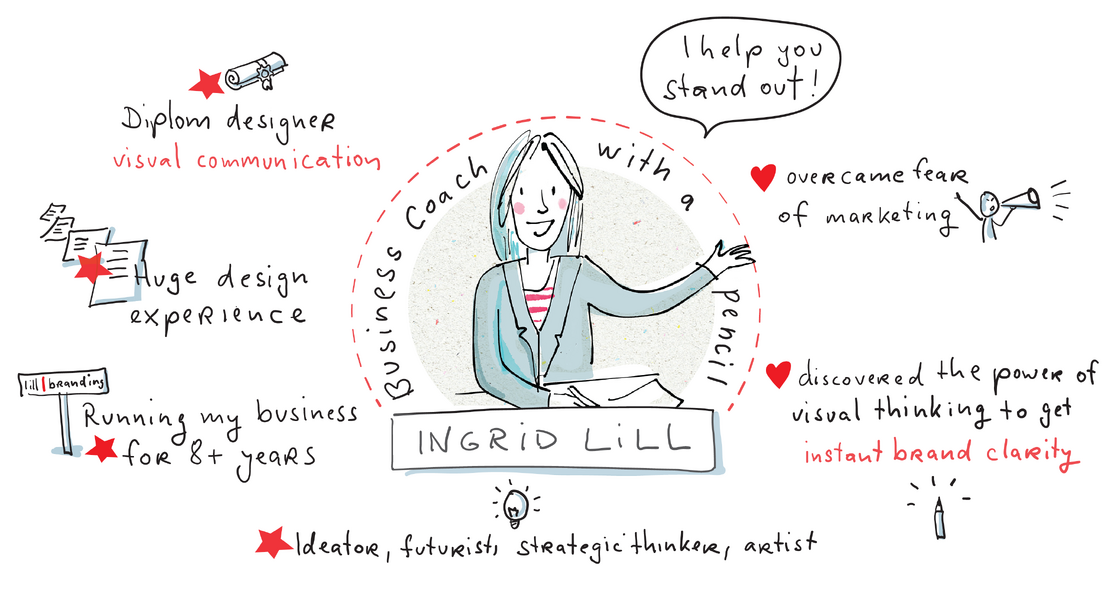 I help you
stand out!
Diplom designer
visual communication
Business Coach with a pencil
overcame fear
of marketing
Huge design
experience
lill|branding
Running my business
for 8+ years
discovered the power of
visual thinking to get
instant brand clarity
INGRID LILL
Ideator, futurist, strategic thinker, artist